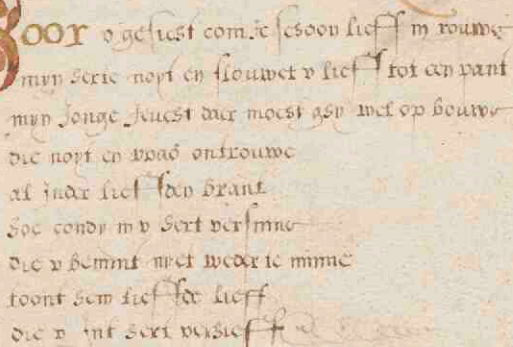 Door v gesicht com ic schoon lieff in rouwe
mijn herte noyt en flouwet v lieff tot een pant
mijn Jonge Jeucht daer moecht ghy wel op bouwe
die noyt en was ontrouwe
al inder lieffden brant
hoe condy in v hert versinne
die v bemint niet weder te minne
toont hem lieffde lieff
die v int hert verhieff